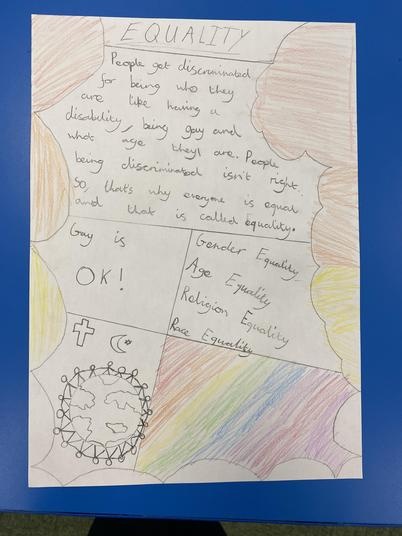 EQUALITY
People get discriminated
for being who they
are like having a
disability, being gay and
what age they are. People
being discriminated isn't right.
So, that's why everyone is equal
and that is called equality.
Gay is
OK!
Gender Equality
Age Equality
Religion Equality
Race Equality